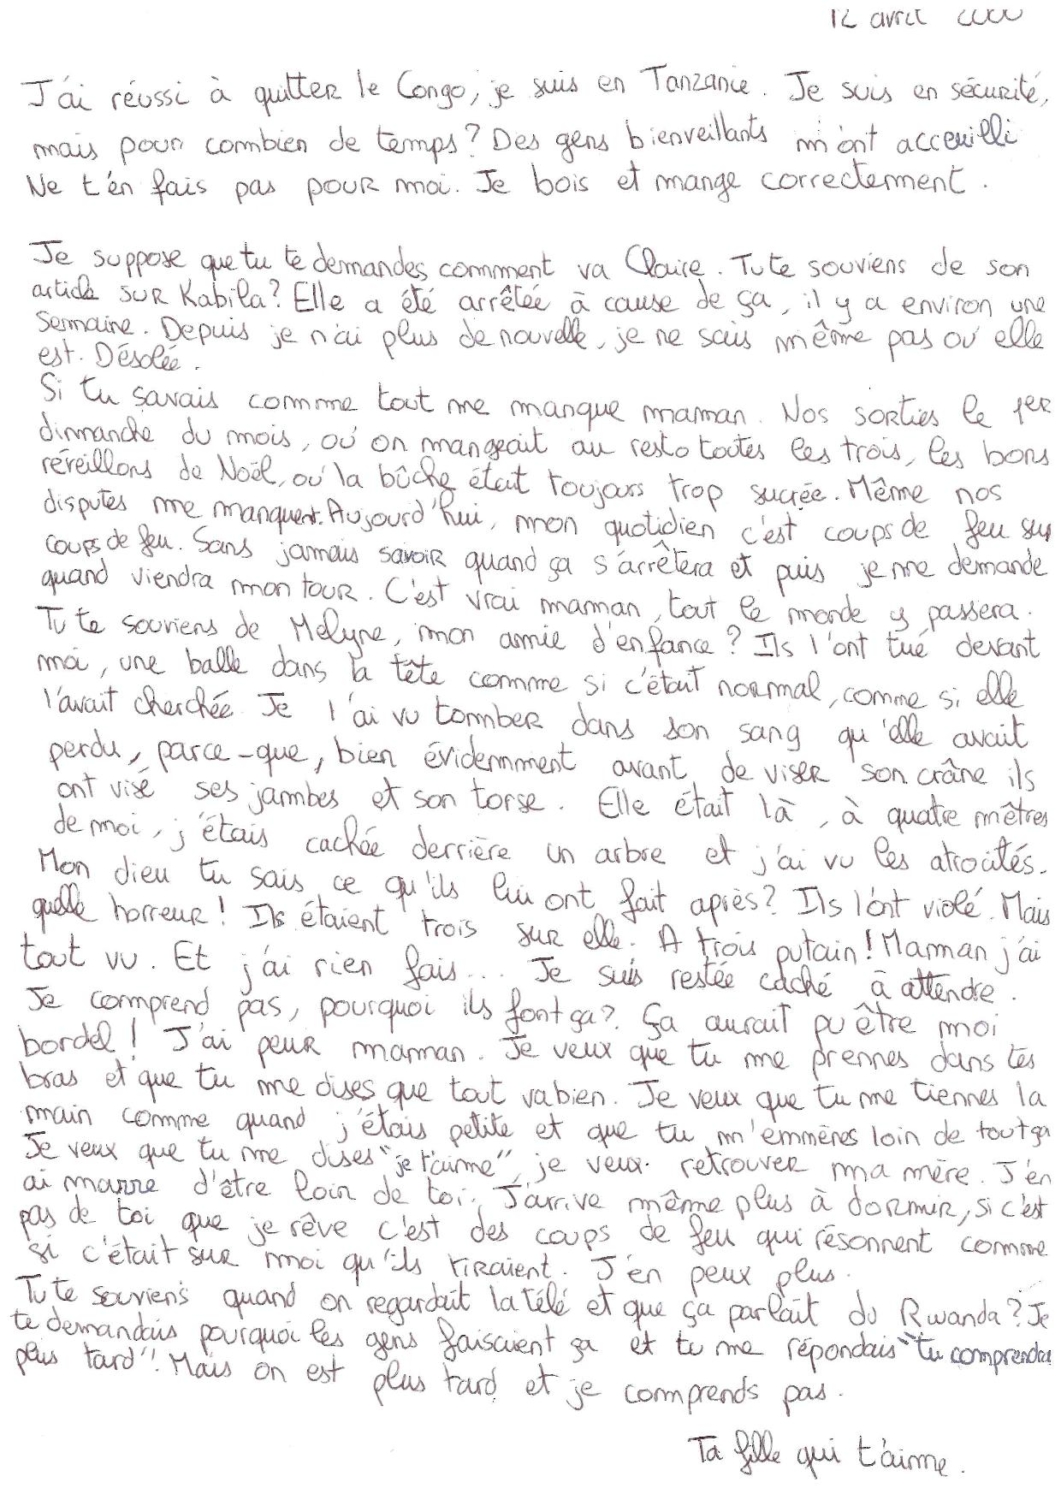 12 avril 2000
J'ai réussi à quitter le Congo, je suis en Tanzanie. Je suis en sécurité,
mais pour combien de temps? Des gens bienveillants m'ont acceuilli
Ne t'en fais pas pour moi. Je bois et mange correctement.
Je suppose que tu te demandes comment va Claire. Tu te souviens de son
article sur Kabila? Elle a été arrêtée à cause de ça, il y a environ une
semaine. Depuis je n'ai plus de nouvelle, je ne sais même pas où elle
est. Désolée.
Si tu savais comme tout me manque maman. Nos sorties le 1er
dimanche du mois, où on mangeait au resto toutes les trois, les bons
réveillons de Noël, où la bûche était toujours trop sucrée. Même nos
disputes me manquent. Aujourd'hui, mon quotidien c'est coups de feu sur
coups de feu. Sans jamais savoir quand ça s'arrêtera et puis je me demande
quand viendra mon tour. C'est vrai maman, tout le monde y passera.
Tu te souviens de Melyne, mon amie d'enfance? Ils l'ont tué devant
moi, une balle dans la tête comme si c'était normal, comme si elle
l'avait cherchée. Je l'ai vu tomber dans son sang qu'elle avait
perdu, parce-que, bien évidemment avant de viser son crâne ils
ont visé ses jambes et son torse. Elle était là, à quatre mètres
de moi, j'étais cachée derrière un arbre et j'ai vu les atrocités.
Mon dieu tu sais ce qu'ils lui ont fait après? Ils l'ont violé. Mais
quelle horreur! Ils étaient trois sur elle. A trois putain! Maman j'ai
tout vu. Et j'ai rien fais... Je suis restée caché à attendre.
Je comprend pas, pourquoi ils font ça? Ça aurait pu être moi
bordel! J'ai peur maman. Je veux que tu me prennes dans tes
bras et que tu me dises que tout va bien. Je veux que tu me tiennes la
main comme quand j'étais petite et que tu m'emmènes loin de tout ça
Je veux que tu me dises "je t'aime", je veux retrouver ma mère. J'en
ai marre d'être loin de toi. J'arrive même plus à dormir, si c'est
pas de toi que je rêve c'est des coups de feu qui résonnent comme
si c'était sur moi qu'ils tiraient. J'en peux plus.
Tu te souviens quand on regardait la télé et que ça parlait du Rwanda? Je
te demandais pourquoi les gens faisaient ça et tu me répondais "tu comprendras
plus tard". Mais on est plus tard et je comprends pas.
Ta fille qui t'aime.